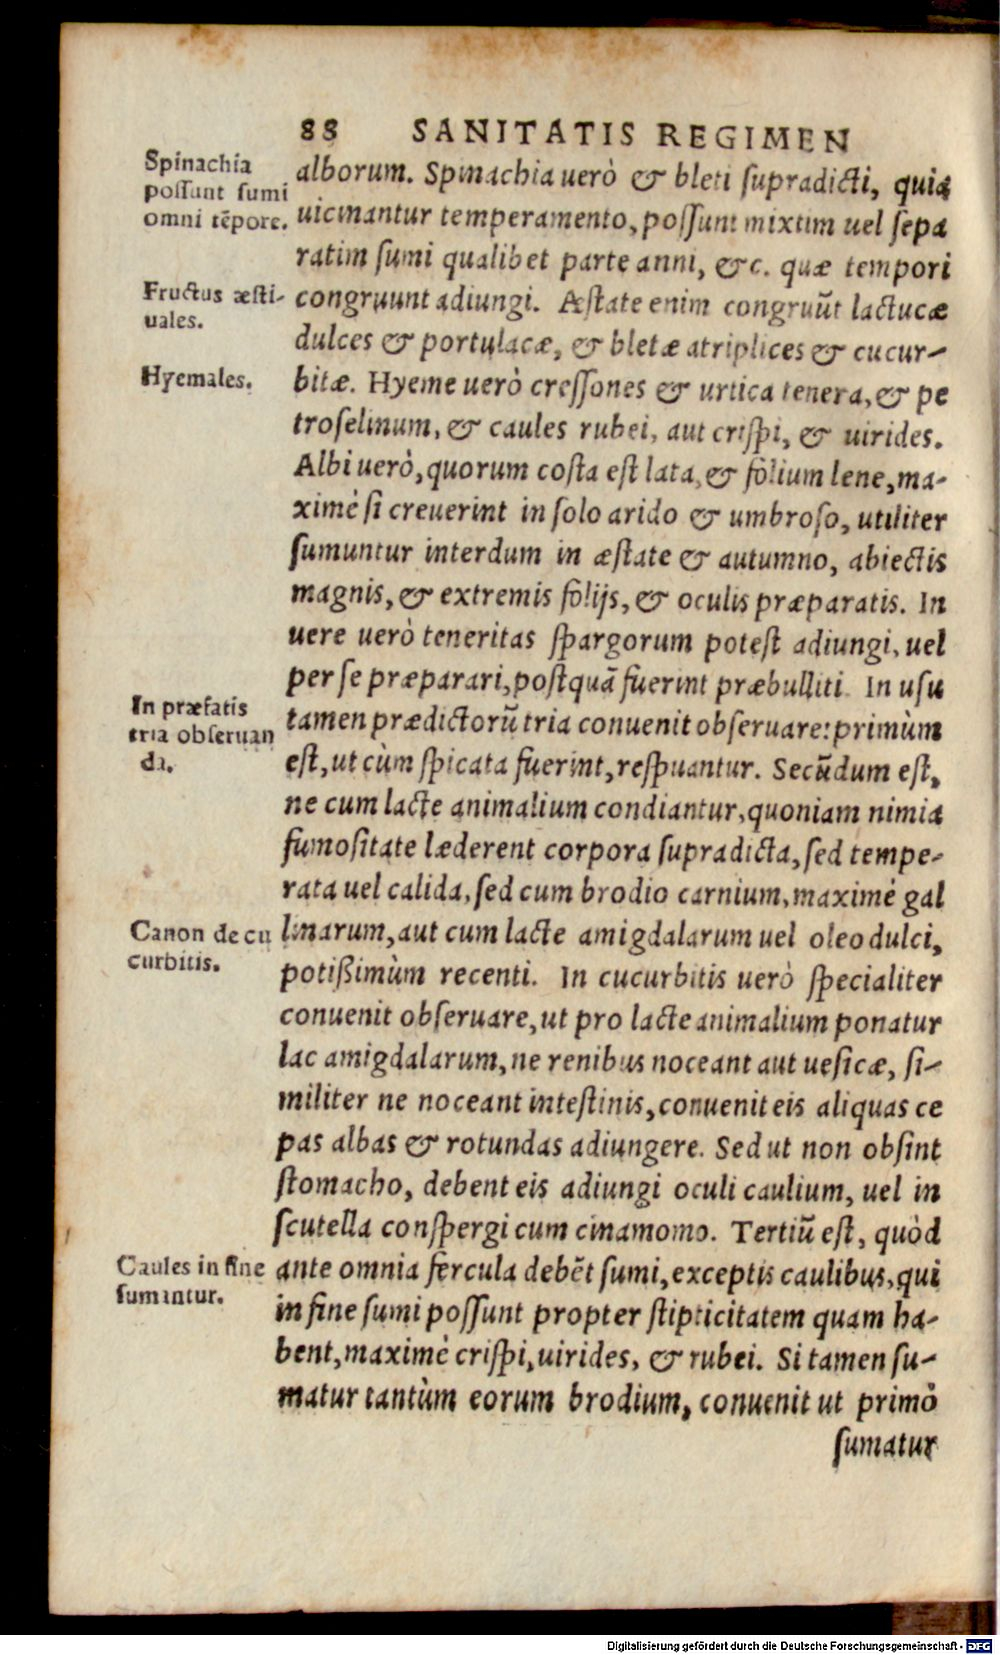 88 SANITATIS REGIMEN
Spinachia
possunt sumi
omni tẽpore.
alborum. Spinachia uerò & bleti supradicti, quia
uicinantur temperamento, possunt mixtim uel sepa
ratim sumi qualibet parte anni, &c. quæ tempori
Fructus æsti-
uales.
congruunt adiungi. Æstate enim congruũt lactucæ
dulces & portulacæ, & bletæ atriplices & cucur-
Hyemales.
bitæ. Hyeme uerò cressones & urtica tenera, & pe
troselinum, & caules rubei, aut crispi, & uirides.
Albi uerò, quorum costa est lata, & folium lene, ma-
ximè si creuerint in solo arido & umbroso, utiliter
sumuntur interdum in æstate & autumno, abiectis
magnis, & extremis folijs, & oculis præparatis. In
uere uerò teneritas spargorum potest adiungi, uel
per se præparari, postquã fuerint præbulliti. In usu
In præfatis
tria obseruan
da.
tamen prædictorũ tria conuenit obseruare: primùm
est, ut cùm spicata fuerint, respuantur. Secũdum est,
ne cum lacte animalium condiantur, quoniam nimia
fumositate læderent corpora supradicta, sed tempe-
rata uel calida, sed cum brodio carnium, maximè gal
Canon de cu
curbitis.
linarum, aut cum lacte amigdalarum uel oleo dulci,
potißimùm recenti. In cucurbitis uerò specialiter
conuenit obseruare, ut pro lacte animalium ponatur
lac amigdalarum, ne renibus noceant aut uesicæ, si-
militer ne noceant intestinis, conuenit eis aliquas ce
pas albas & rotundas adiungere. Sed ut non obsint
stomacho, debent eis adiungi oculi caulium, uel in
scutella conspergi cum cinamomo. Tertiũ est, quòd
Caules in fine
sumantur.
ante omnia fercula debẽt sumi, exceptis caulibus, qui
in fine sumi possunt propter stipticitatem quam ha-
bent, maximè crispi, uirides, & rubei. Si tamen su-
matur tantùm eorum brodium, conuenit ut primò
sumatur
Digitalisierung gefördert durch die Deutsche Forschungsgemeinschaft - DFG